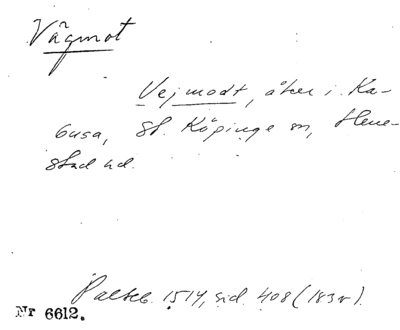 Vägmot
Vejmodt, åker i Ka-
busa, St. Köpinge sn, Herre-
stad hd.
Palteb. 1514, sid. 408 (183v).
Nr 6612.